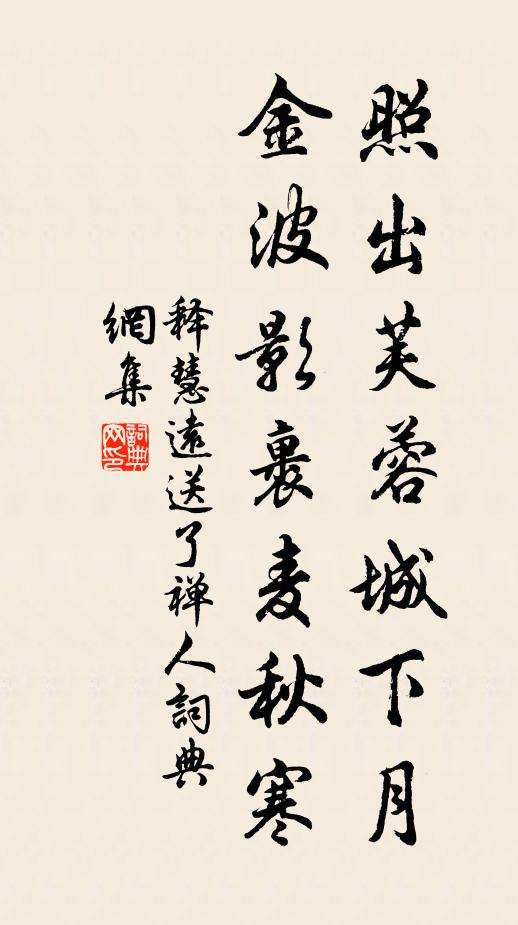 照出芙蓉城下月
金波影裏麦秋寒
释慧遠送了禅人詞典
網集
詞典
网印